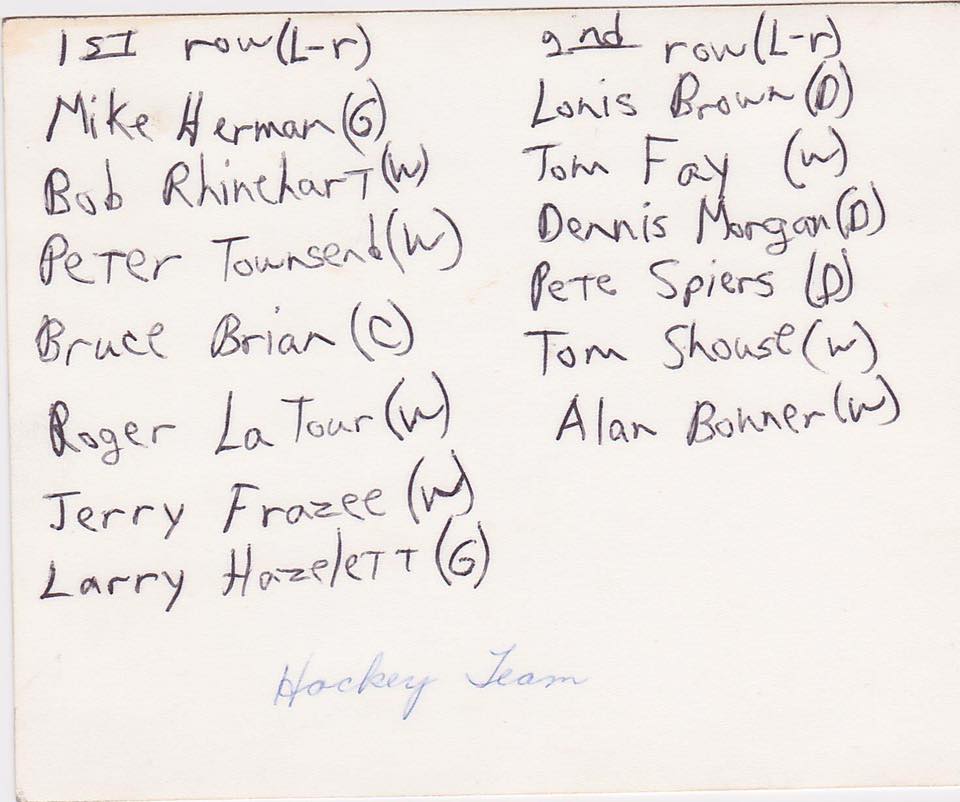 1ST row (L-r)
Mike Herman (G)
Bob Rhinehart (W)
Peter Townsend (W)
Bruce Brian (C)
Roger La Tour (W)
Jerry Frazee (W)
Larry Hazelett (G)
2nd row (L-r)
Lonis Brown (D)
Tom Fay (W)
Dennis Morgan (D)
Pete Spiers (D)
Tom Shouse (W)
Alan Bohner (W)
Hockey Team